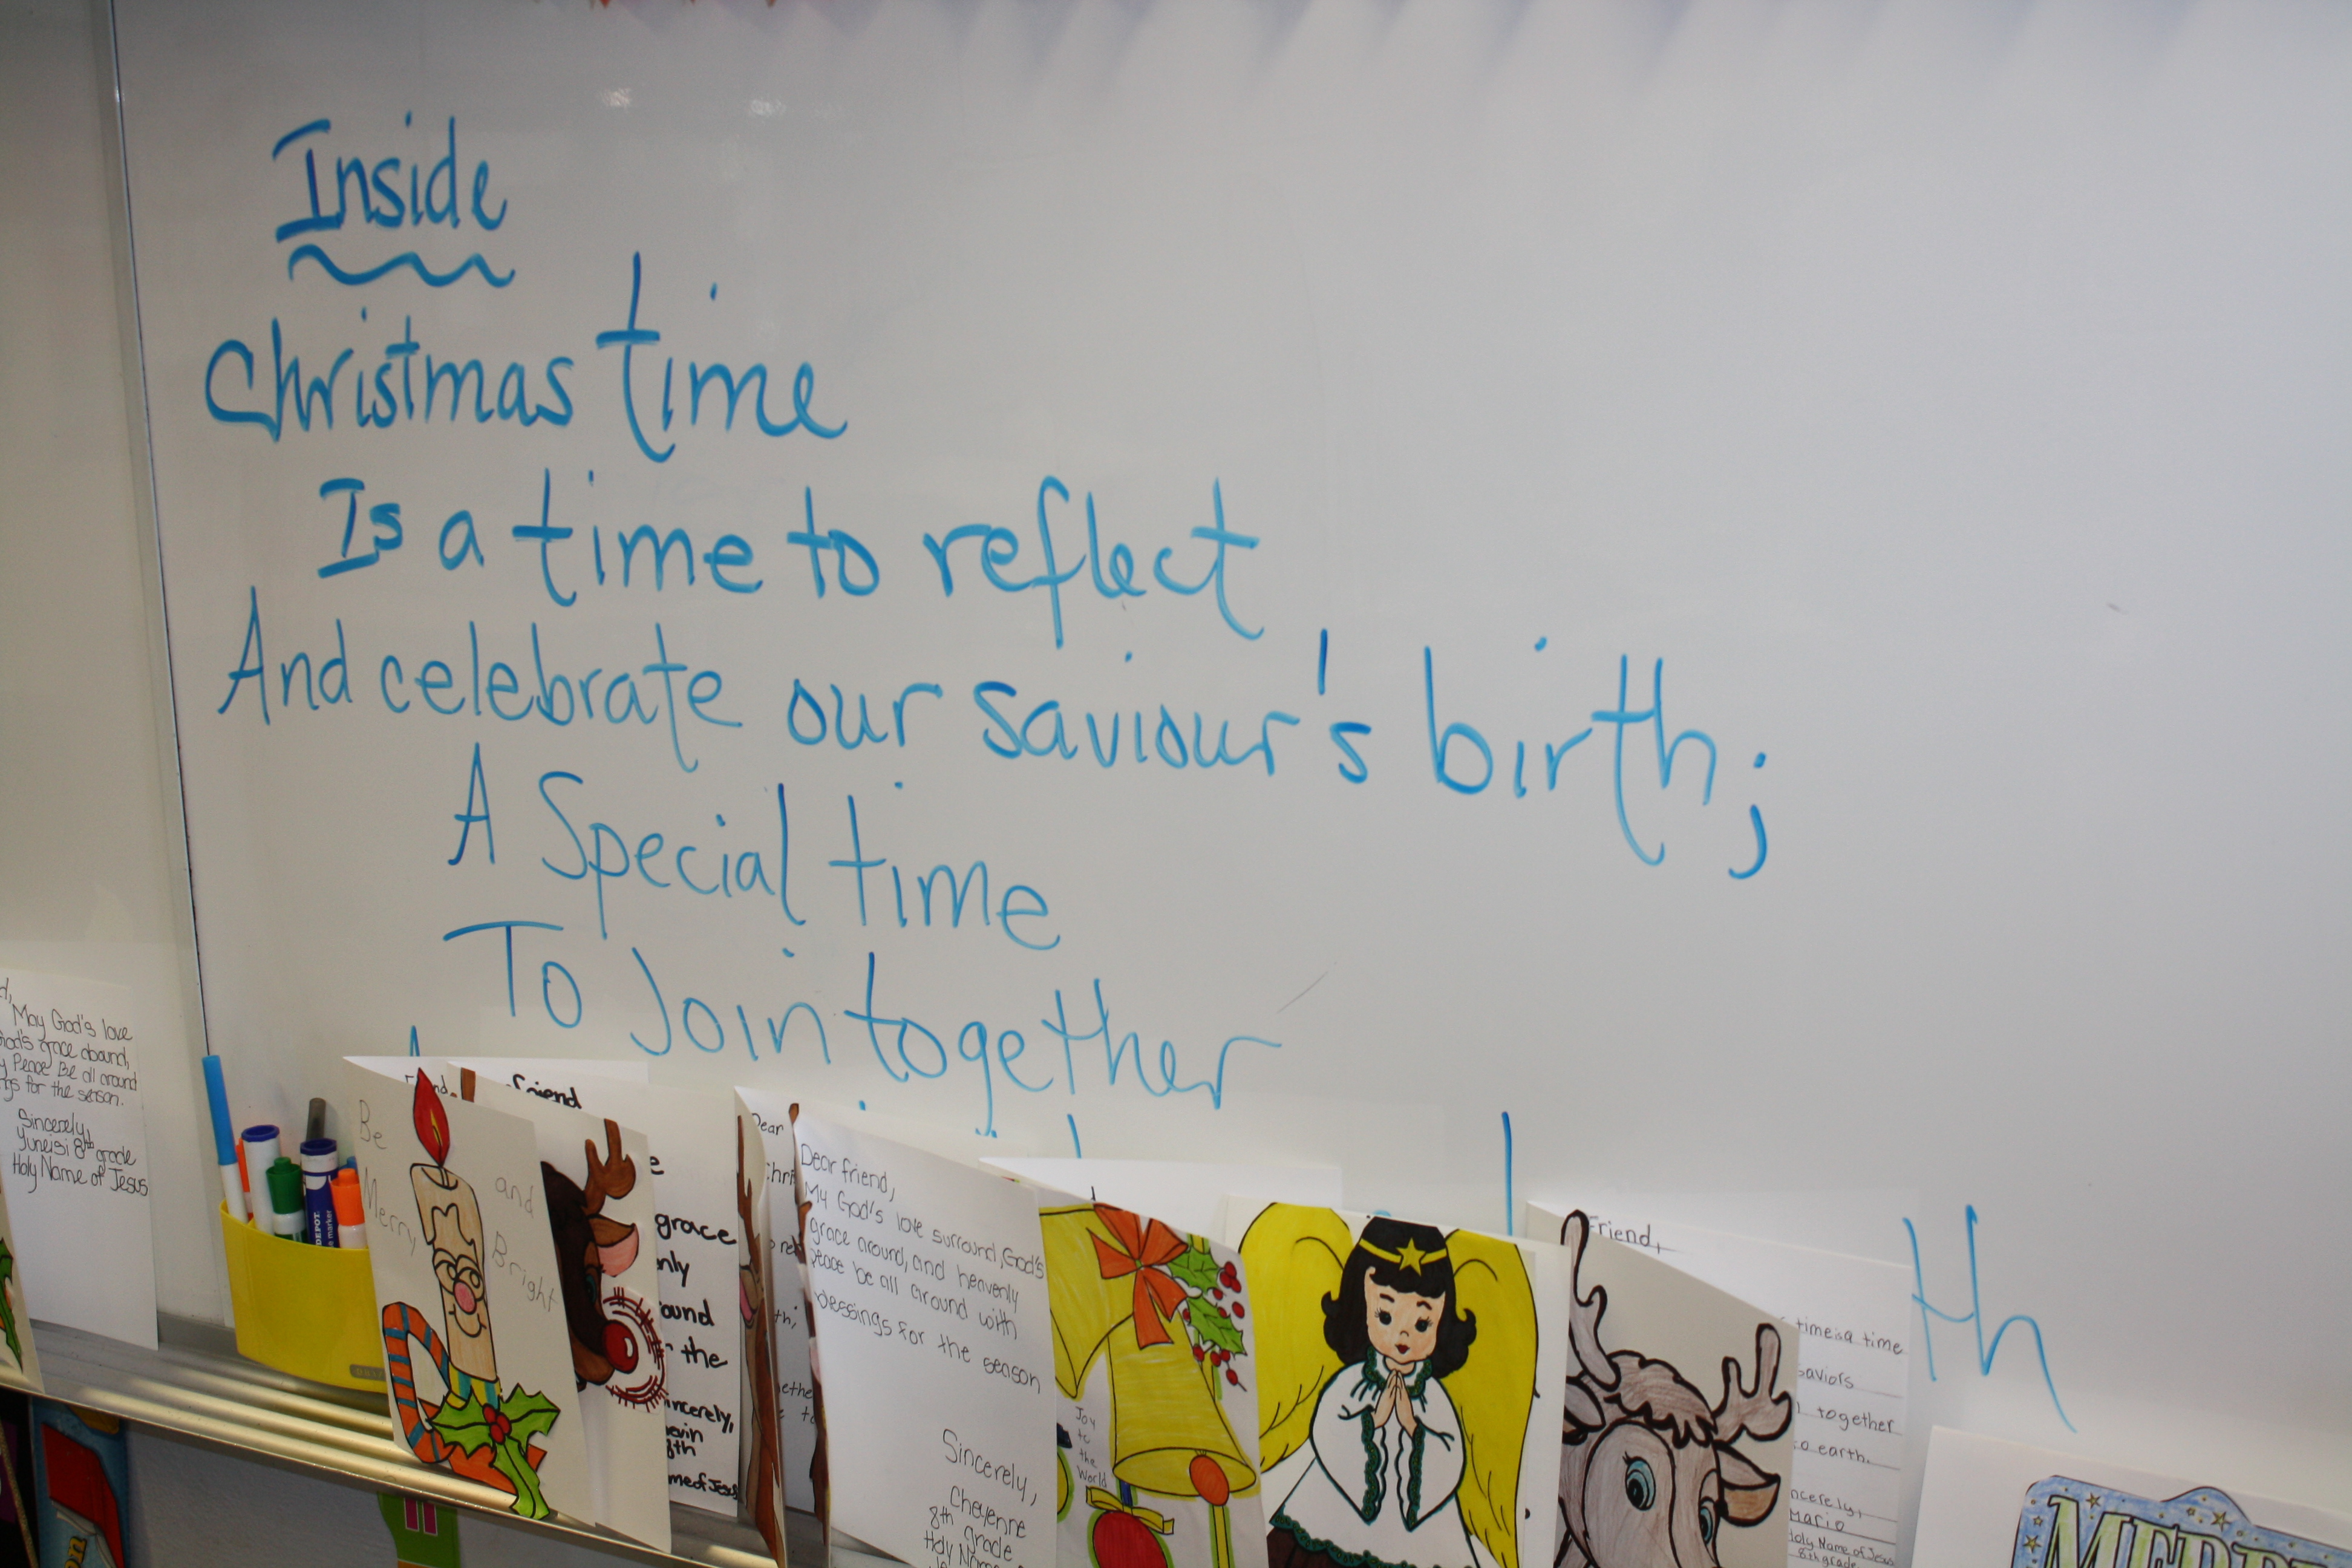 Inside
Christmas time
Is a time to reflect
And celebrate our saviour's birth;
A Special time
To Join together
th
May God's love
God's grace abound,
Peace Be all around
for the season.
Sincerely,
Yuneisi 8th grade
Holy Name of Jesus
Be
Merry
and
Bright
friend
grace
the
Dear
Dear friend,
My God's love surround, God's
grace around, and heavenly
peace be all around with
blessings for the season
Sincerely,
Cheyenne
8th grade
Holy Name
Joy
to
the
World
Friend,
time is a time
saviors
together
to earth.
Mario
Holy Name of Jesus
8th grade
DEPOT
marker